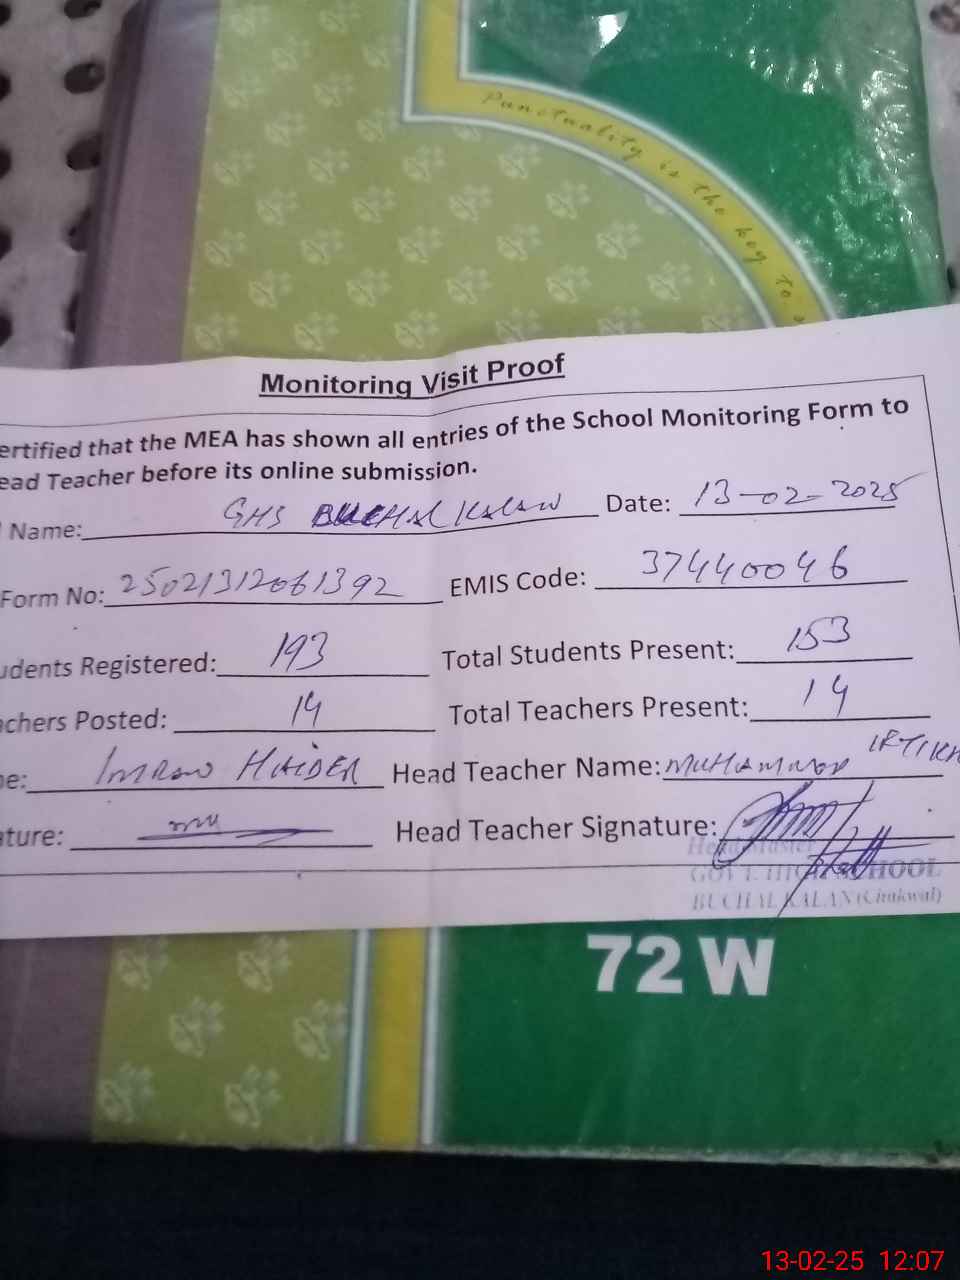 Punctuality is the key to
Monitoring Visit Proof
ertified that the MEA has shown all entries of the School Monitoring Form to
ead Teacher before its online submission.
Name: GHS BUCHAL KALAN Date: 13-02-2025
Form No: 25021312061392 EMIS Code: 37440046
udents Registered: 193 Total Students Present: 153
achers Posted: 14 Total Teachers Present: 14
e: IMRAN HAIDER Head Teacher Name: MUHAMMAD IRTIKH
ature: Head Teacher Signature:
Head Master
GOVT. HIGH SCHOOL
BUCHAL KALAN (Chakwal)
72 W
13-02-25 12:07